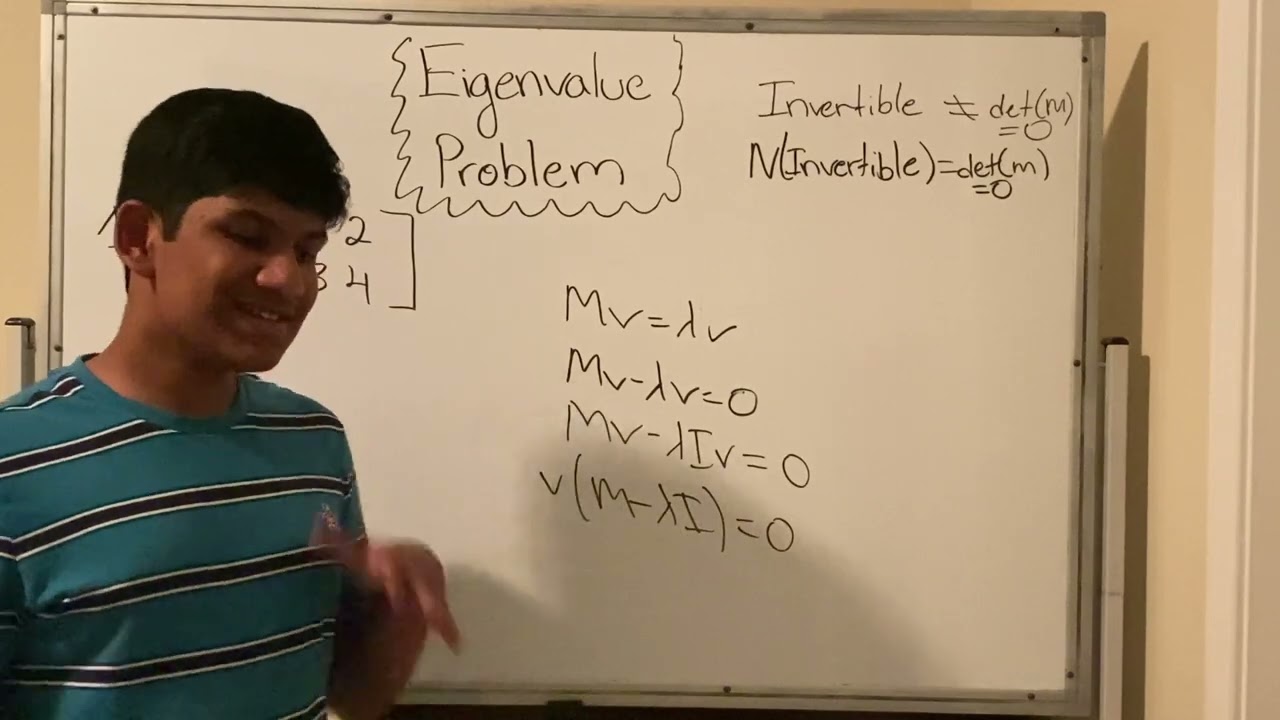 Eigenvalue
Problem
Invertible ≠ det(m)
=0
N(Invertible)=det(m)
=0
2
3 4
Mv=λv
Mv-λv=0
Mv-λIv=0
v(M-λI)=0